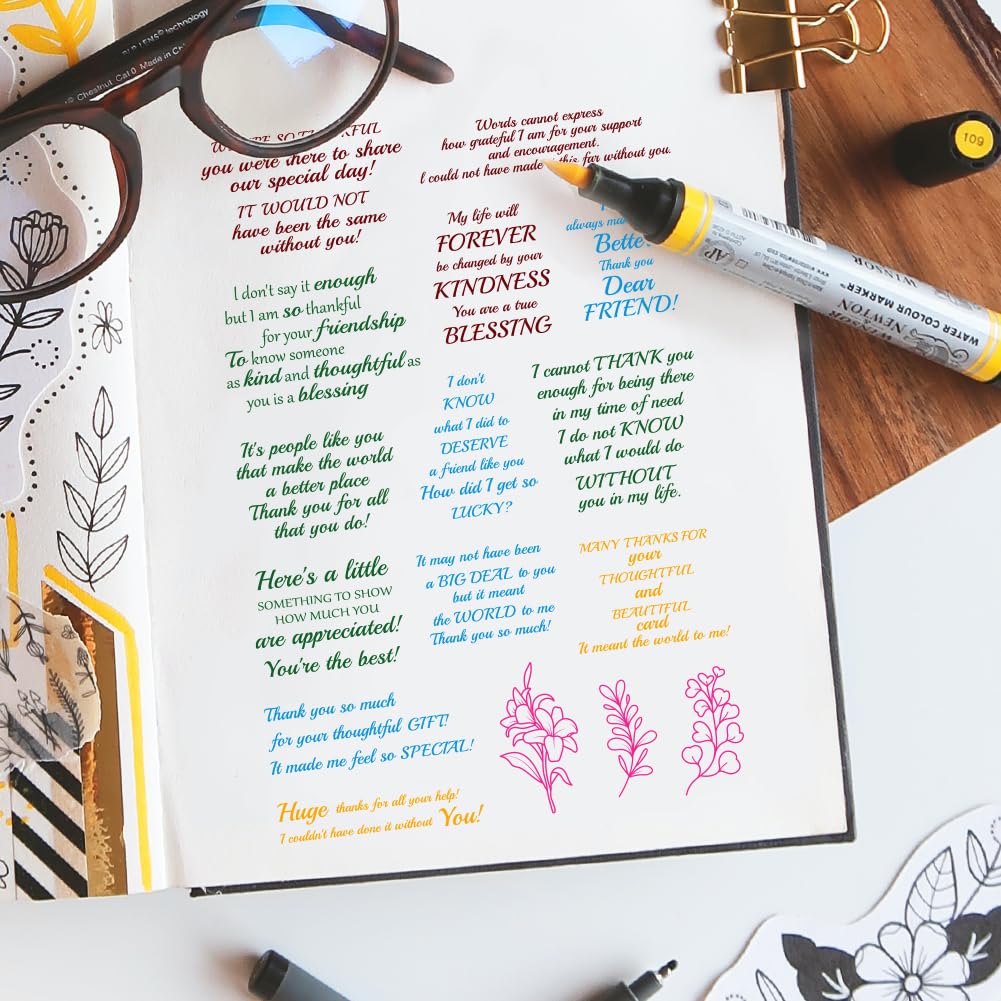 BLP LENS technology
Chestnut Cat 0 Made in
SO
you were there to share
our special day!
IT WOULD NOT
have been the same
without you!
Words cannot express
how grateful I am for your support
and encouragement.
I could not have made this far without you.
My life will
FOREVER
be changed by your
KINDNESS
You are a true
BLESSING
always
Thank you
Dear
FRIEND!
I don't say it enough
but I am so thankful
for your friendship
To know someone
as kind and thoughtful as
you is a blessing
I don't
KNOW
what I did to
DESERVE
a friend like you
How did I get so
LUCKY?
I cannot THANK you
enough for being there
in my time of need
I do not KNOW
what I would do
WITHOUT
you in my life.
It's people like you
that make the world
a better place
Thank you for all
that you do!
Here's a little
SOMETHING TO SHOW
HOW MUCH YOU
are appreciated!
You're the best!
It may not have been
a BIG DEAL to you
but it meant
the WORLD to me
Thank you so much!
MANY THANKS FOR
your
THOUGHTFUL
and
BEAUTIFUL
card
It meant the world to me!
Thank you so much
for your thoughtful GIFT!
It made me feel so SPECIAL!
Huge thanks for all your help!
I couldn't have done it without You!
109
AP
WINSOR
NEWTON
WATER COLOUR MARKER™